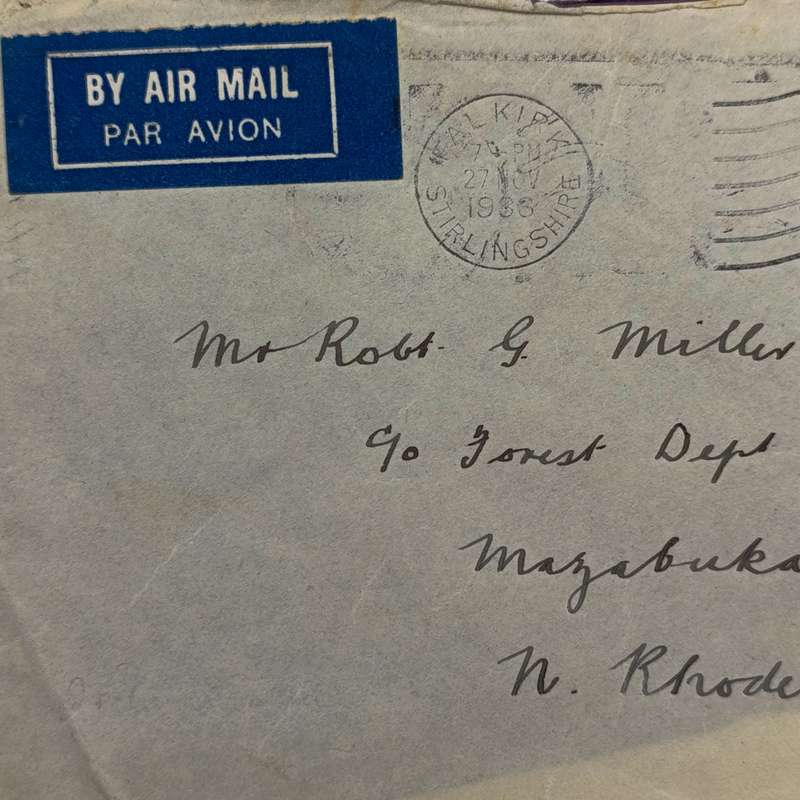 BY AIR MAIL
PAR AVION
FALKIRK
7 PM
27 NOV
1933
STIRLINGSHIRE
Mr Robt. G. Miller
c/o Forest Dept
Mazabuka
N. Rhode